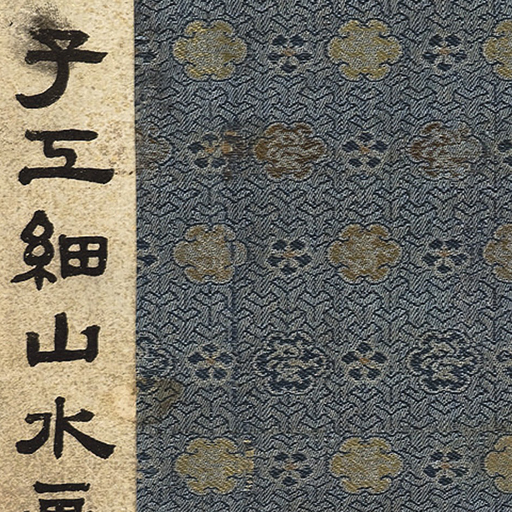 子工細山水